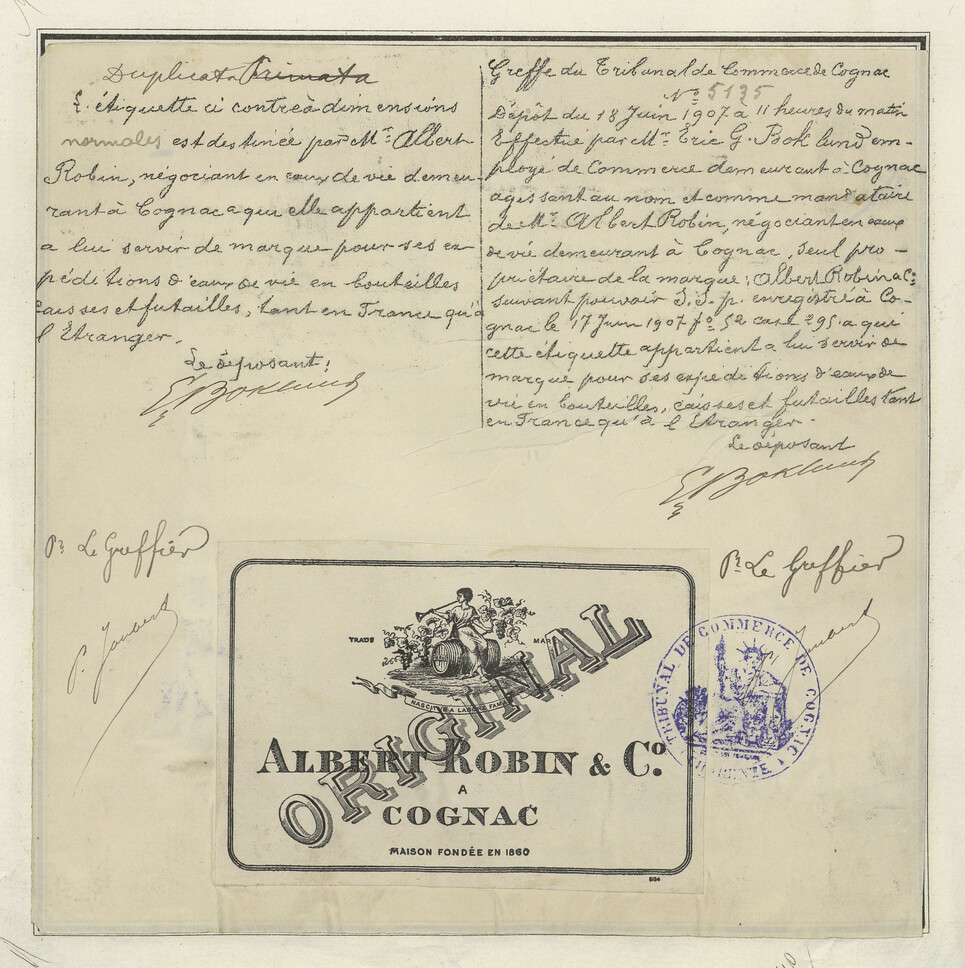 Duplicata Primata
L'étiquette ci contre à dimensions
normales est destinée par Mr. Albert
Robin, négociant en eaux de vie demeu-
rant à Cognac a qui elle appartient
a lui servir de marque pour ses ex
péditions d'eaux de vie en bouteilles
caisses et futailles, tant en France qu'à
l'Etranger.
Le déposant:
E. Boklund
Pr Le Greffier
Greffe du Tribunal de Commerce de Cognac
No 5135
Dépôt du 18 Juin 1907 a 11 heures du matin
Effectué par Mr. Eric G. Boklund em-
ployé de Commerce demeurant à Cognac
agissant au nom et comme mandataire
de Mr. Albert Robin, négociant en eaux
de vie demeurant à Cognac, seul pro-
priétaire de la marque: Albert Robin & Co:
suivant pouvoir S.S.p. enregistré à Co-
gnac le 17 Juin 1907 fo 52 case 295. a qui
cette étiquette appartient a lui servir de
marque pour ses expéditions d'eaux de
vie en bouteilles, caisses et futailles tant
en France qu'à l'Etranger.
Le déposant
E. Boklund
Pr Le Greffier
TRIBUNAL DE COMMERCE DE COGNAC
CHARENTE
TRADE MARK
NASCITUR A LABORE FAMA
ORIGINAL
ALBERT ROBIN & Co.
A
COGNAC
MAISON FONDÉE EN 1860